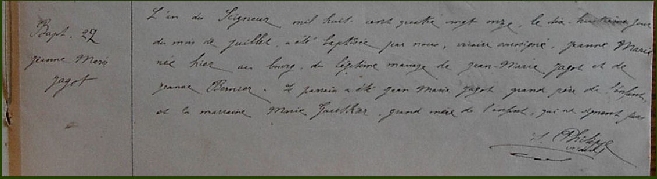 Bapt. 27
jeanne Marie
jagot
L'an du Seigneur mil huit cent quatre vingt onze, le dix huitième jour
du mois de juillet, a été baptisée par nous, vicaire soussigné, jeanne Marie
née hier au bourg, du légitime mariage de jean-Marie jagot et de
jeanne Bernier. Le parrain a été jean Marie jagot grand père de l'enfant,
et la marraine Marie grand mère de l'enfant, qui ne signent pas